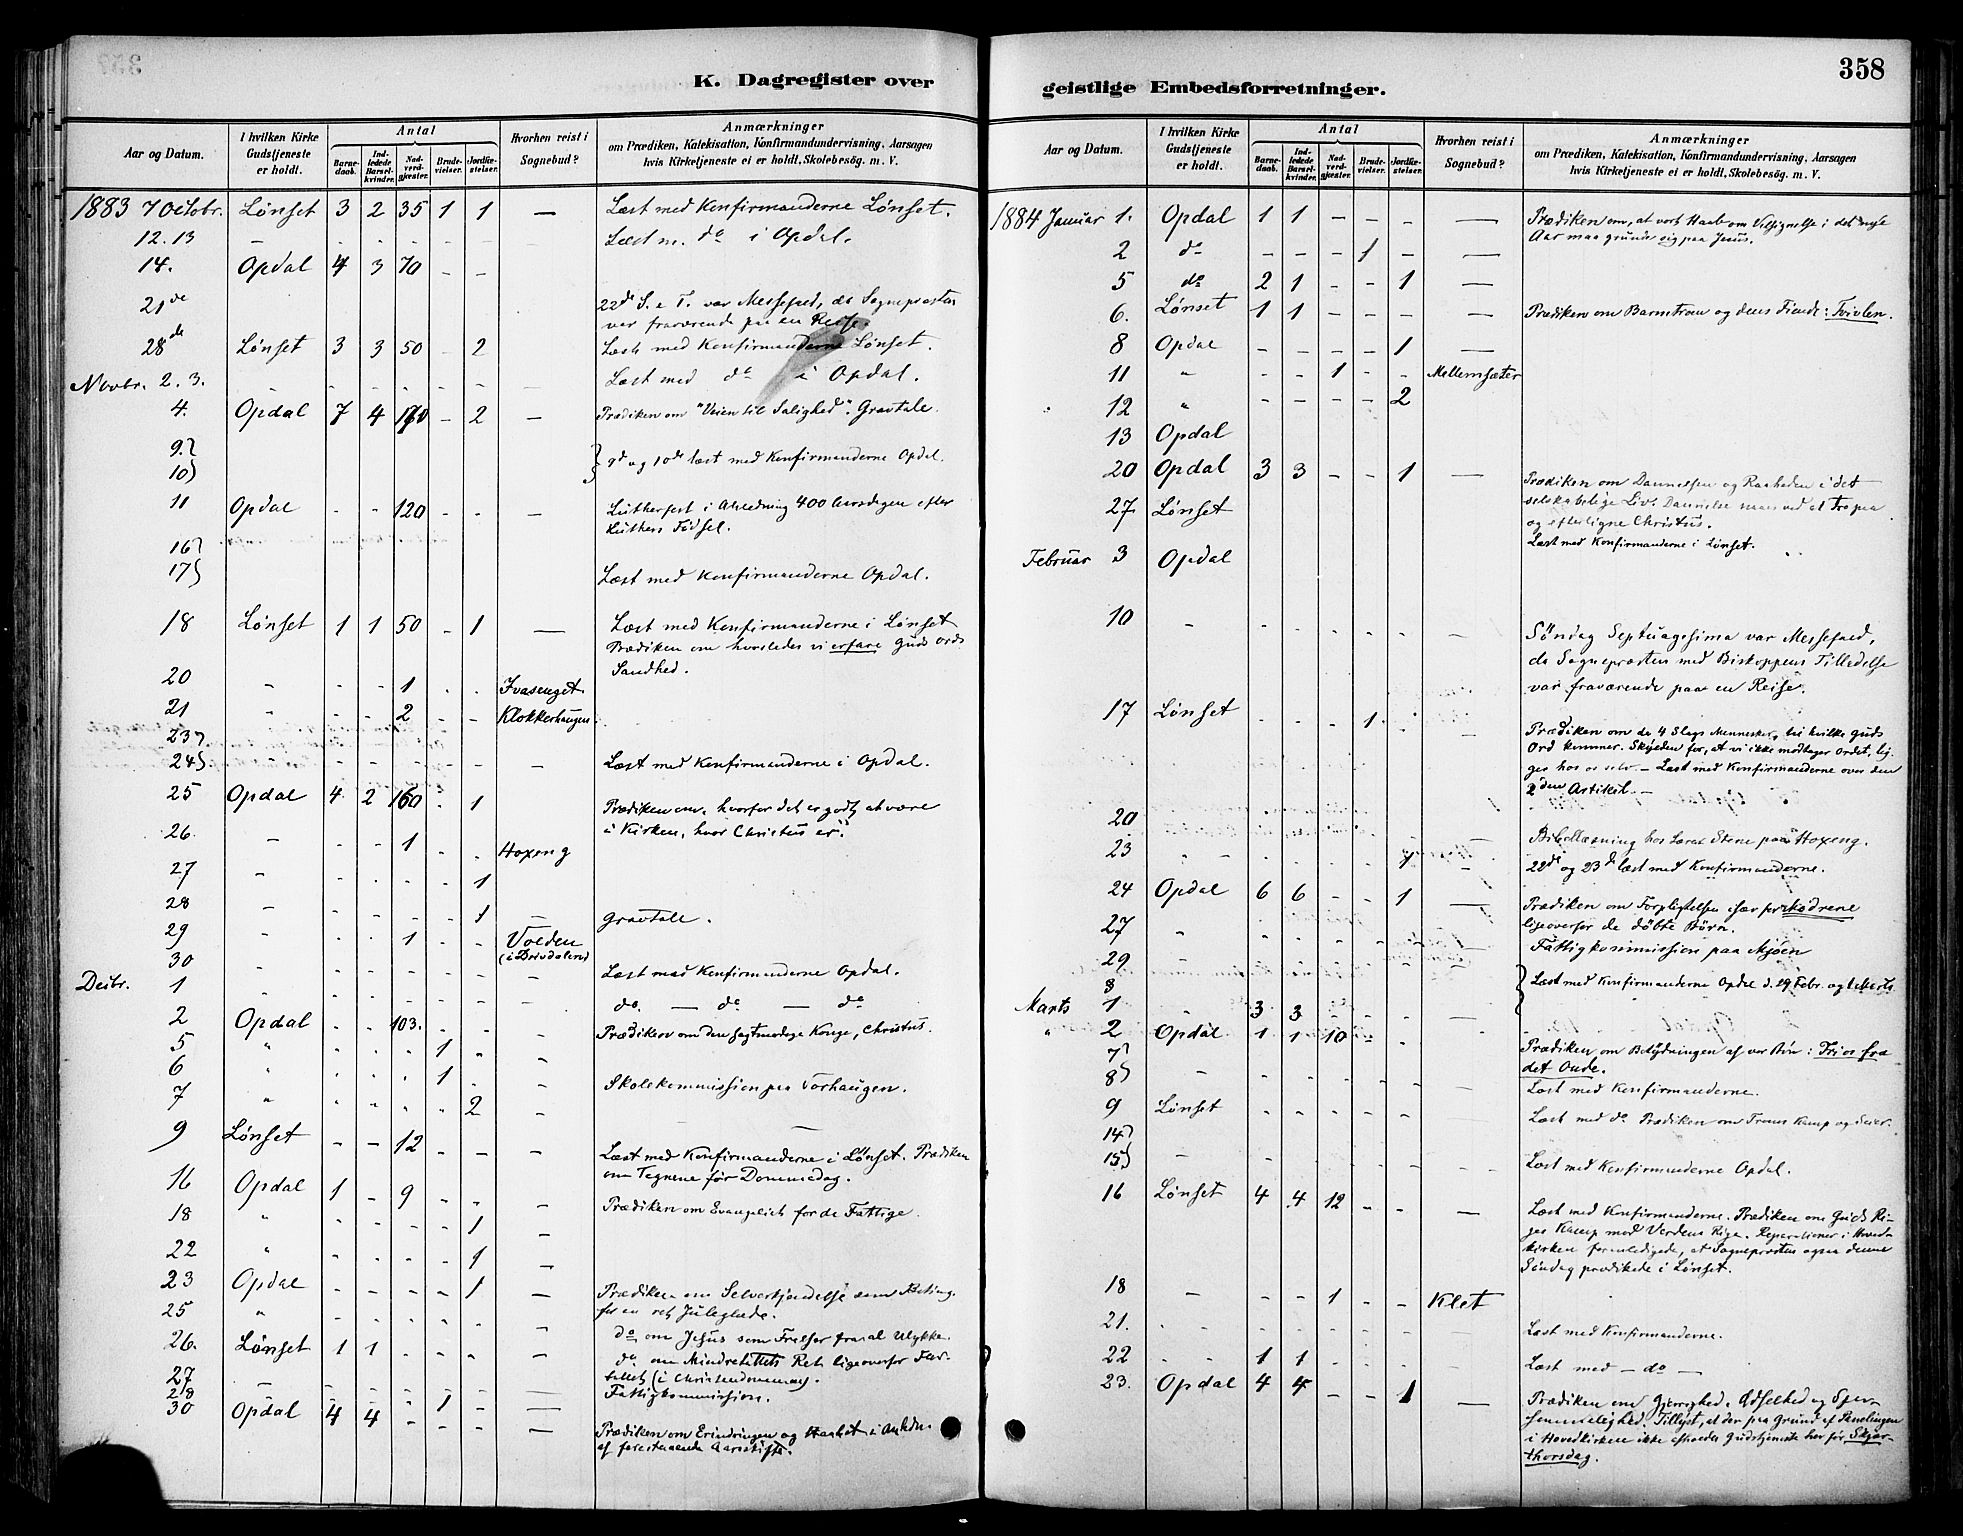 K. Dagregister over
Aar og Datum.
I hvilken Kirke Gudstjeneste er holdt.
Antal
Barnedaab.
Indledede Barselkvinder.
Nadverdgjæster.
Brudevielser.
Jordfæstelser.
Hvorhen reist i Sognebud?
Anmærkninger
om Prædiken, Katekisation, Konfirmandundervisning, Aarsagen
hvis Kirketjeneste ei er holdt, Skolebesøg. m. V.
1883 7 Octobr. Lønset 3 2 35 1 1 — Læst med Konfirmanderne Lønset.
12. 13 Læst m. do i Opdal.
14. Opdal 4 3 70 - -
21de 22de S. e T. var Messefred, da Sognepræsten
var fraværende paa en Reise.
28de Lønset 3 3 50 - 2 Læst med Konfirmanderne Lønset.
Novbr. 2. 3. Læst med do i Opdal.
4. Opdal 7 4 170 - 2 — Prædiken om "Veien til Salighed". Gravtale.
9.
10 9de og 10de læst med Konfirmanderne Opdal.
11 Opdal - - 120 - - - Lutherfest i Anledning 400 Aarsdagen efter
Luthers Fødsel.
16
17 Læst med Konfirmanderne Opdal.
18 Lønset 1 1 50 - 1 — Læst med Konfirmanderne i Lønset
Prædiken om hvorledes vi erfare Guds Ords
Sandhed.
20 - - 1 - - Ivasenget.
21 - - 2 - - Klokkerhaugen
23
24 Læst med Konfirmanderne i Opdal.
25 Opdal 4 2 160 - 1 Prædiken om, hvorfor det er godt at være
i Kirken, hvor Christus er.
26. - - 1 - - Hoxeng
27 - - - - 1
28 - - - - 1 - Gravtale.
29 - - 1 - - Volden
(i Drivdalen)
30 Læst med Konfirmanderne Opdal.
Decbr. 1 do. — do — do
2 Opdal - - 103. - - - Prædiken om den sagtmodige Konge, Christus.
5 " - - - 1 - -
6 " - - - 1 - - Skolekommission paa Vorhaugen.
7 " - - - - 2 -
9 Lønset - - 12 - - - Læst med Konfirmanderne i Lønset. Prædiken
om Tegnene før Dommedag.
16 Opdal 1 - 9 - - - Prædiken om Evangeliet for de Fattige.
18 " - - - - 1 -
22 " - - - - 1 -
23 Opdal - - - - 1 - Prædiken om Selverkjendelse som Beting.
for en ret Juleglæde.
25 " do om Jesus som Frelser fra al Ulykke.
26. Lønset 1 1 - - - - do. om Mindretallets Ret ligeoverfor Fler-
tallet (i Christendommen).
27
28 - - - 1 - — Fattigkommission.
30 Opdal 4 4 - - - — Prædiken om Erindringen og Haabet i Anledn.
af forestaaende Aarsskifte.
358
geistlige Embedsforretninger.
Aar og Datum.
I hvilken Kirke Gudstjeneste er holdt.
Antal
Barnedaab.
Indledede Barselkvinder.
Nadverdgjæster.
Brudevielser.
Jordfæstelser.
Hvorhen reist i Sognebud?
Anmærkninger
om Prædiken, Katekisation, Konfirmandundervisning, Aarsagen
hvis Kirketjeneste ei er holdt, Skolebesøg. m. V.
1884 Januar 1. Opdal 1 1 - - - — Prædiken om, at vort Haab om Velsignelse i det nye
Aar maa grunde sig paa Jesus.
2 do - - - 1 - —
5 do 2 1 - - 1 —
6. Lønset 1 1 - - - — Prædiken om Barntroen og dens Fiende: Tvivlen.
8 Opdal - - - - 1 —
11 " - - 1 - - Mellemsæter
12 " - - - - 2
13 Opdal
20 Opdal 3 3 - - 1 — Prædiken om Dannelsen og Raaheden i det
selskabelige Liv. Dannelse naaes ved at Tro paa
og efterligne Christus.
27 Lønset Læst med Konfirmanderne i Lønset.
Februar 3 Opdal
10 Søndag Septuagesima var Messefred,
da Sognepræsten med Biskoppens Tilladelse
var fraværende paa en Reise.
17 Lønset - - - 1 - Prædiken om de 4 Slags Mennesker, til hvilke Guds
Ord kommer. Skylden for, at vi ikke modtager Ordet, lig-
ger hos os selv. - Læst med Konfirmanderne over den
2den Artikel. -
20 Bibellæsning hos Lærer Stene paa Hoxeng.
23 - - - - 1 22de og 23de læst med Konfirmanderne.
24 Opdal 6 6 - - 1 — Prædiken om Forpligtelsen især for Mødrene
ligeoverfor de døbte Børn.
27 Fattigkommission paa Mjøen
29 Læst med Konfirmanderne Opdal d. 29 Febr. og 1 Marts
Marts 1 3 3 - - -
" 2 Opdal 1 1 10 - - - Prædiken om Betydningen af vor Bøn: Fri os fra
det Onde.
7
8 Læst med Konfirmanderne.
9 Lønset Læst med do Prædiken om Troens Kamp og Seier.
14
15 Læst med Konfirmanderne Opdal.
16 Lønset 4 4 12 - - — Læst med Konfirmanderne. Prædiken om Guds Ri-
ges Kamp med Verdens Rige. Reparationer i Hoved-
kirken foranledigede, at Sognepræsten ogsaa denne
Søndag prædikede i Lønset.
18 - - 1 - - Klet
21. Læst med Konfirmanderne.
22 1 1 - - - Læst med — do —
23. Opdal 4 4 - - 1 Prædiken om Gjerrighed, Ødselhed og Spar-
sommelighed. Tillyst, at der paa Grund af Panelingen
i Hovedkirken ikke afholdes Gudstjeneste her før Skjær-
thorsdag.